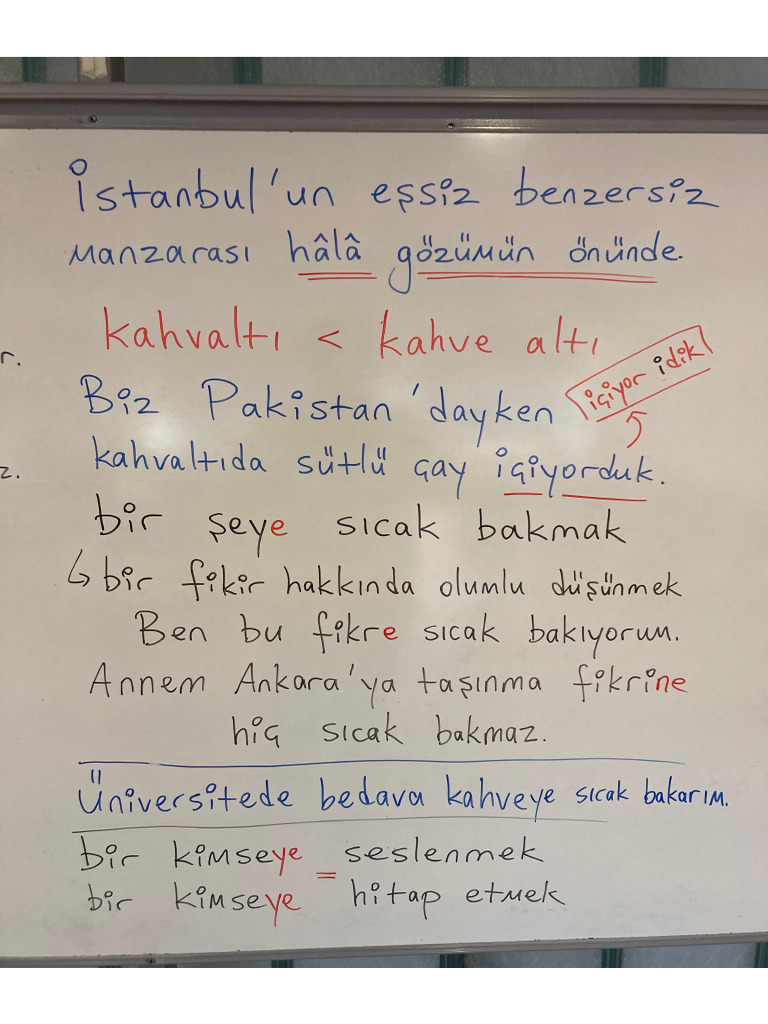 İstanbul'un eşsiz benzersiz
manzarası hâlâ gözümün önünde.
kahvaltı < kahve altı
r.
içiyor idik
Biz Pakistan'dayken
kahvaltıda sütlü çay içiyorduk.
z.
bir şeye sıcak bakmak
↳ bir fikir hakkında olumlu düşünmek
Ben bu fikre sıcak bakıyorum.
Annem Ankara'ya taşınma fikrine
hiç sıcak bakmaz.
Üniversitede bedava kahveye sıcak bakarım.
bir kimseye = seslenmek
bir kimseye hitap etmek